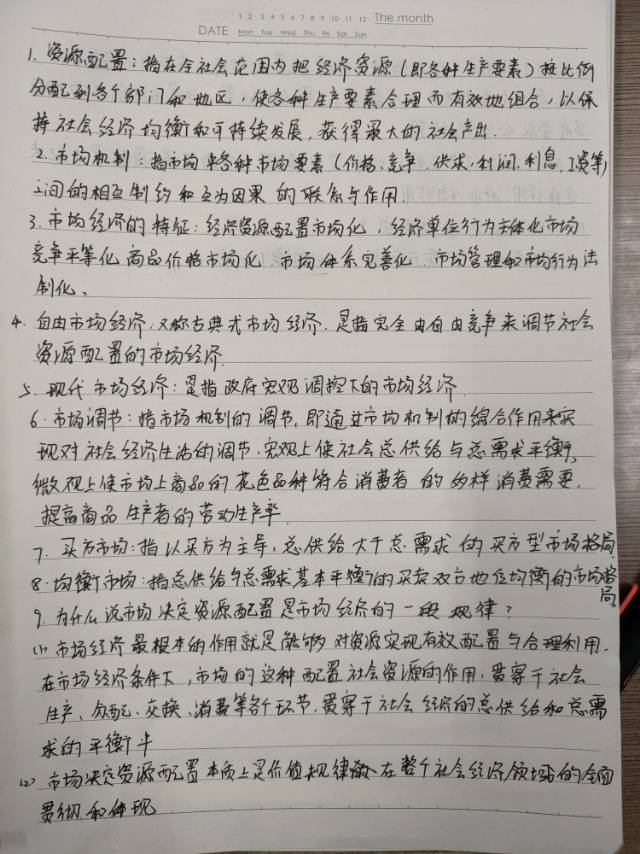 1 2 3 4 5 6 7 8 9 10 11 12 The month
DATE Mon Tue Wed Thu Fri Sat Sun
1. 资源配置：指在全社会范围内把经济资源（即各种生产要素）按比例
分配到各个部门和地区，使各种生产要素合理而有效地组合，以保
持社会经济均衡和可持续发展，获得最大的社会产出.
2. 市场机制：指市场中各种市场要素（价格、竞争、供求、利润、利息、工资等）
之间的相互制约和互为因果的联系与作用
3. 市场经济的特征：经济资源配置市场化，经济单位行为主体化市场
竞争平等化 商品价格市场化 市场体系完善化、市场管理和市场行为法
制化、
4. 自由市场经济，又称古典式市场经济，是指完全由自由竞争来调节社会
资源配置的市场经济.
5. 现代市场经济：是指政府宏观调控下的市场经济.
6. 市场调节：指市场机制的调节，即通过市场机制的综合作用来实
现对社会经济生活的调节，宏观上使社会总供给与总需求平衡，
微观上使市场上商品的花色品种符合消费者的多样消费需要，
提高商品生产者的劳动生产率
7. 买方市场：指以买方为主导，总供给大于总需求的买方型市场格局
8. 均衡市场：指总供给与总需求基本平衡的买卖双方地位均衡的市场格
局
9. 为什么说市场决定资源配置是市场经济的一般规律？
(1) 市场经济最根本的作用就是能够对资源实现有效配置与合理利用.
在市场经济条件下，市场的这种配置社会资源的作用，贯穿于社会
生产、分配、交换、消费等各个环节，贯穿于社会经济的总供给和总需
求的平衡中
(2) 市场决定资源配置本质上是价值规律在整个社会经济领域的全面
贯彻和体现